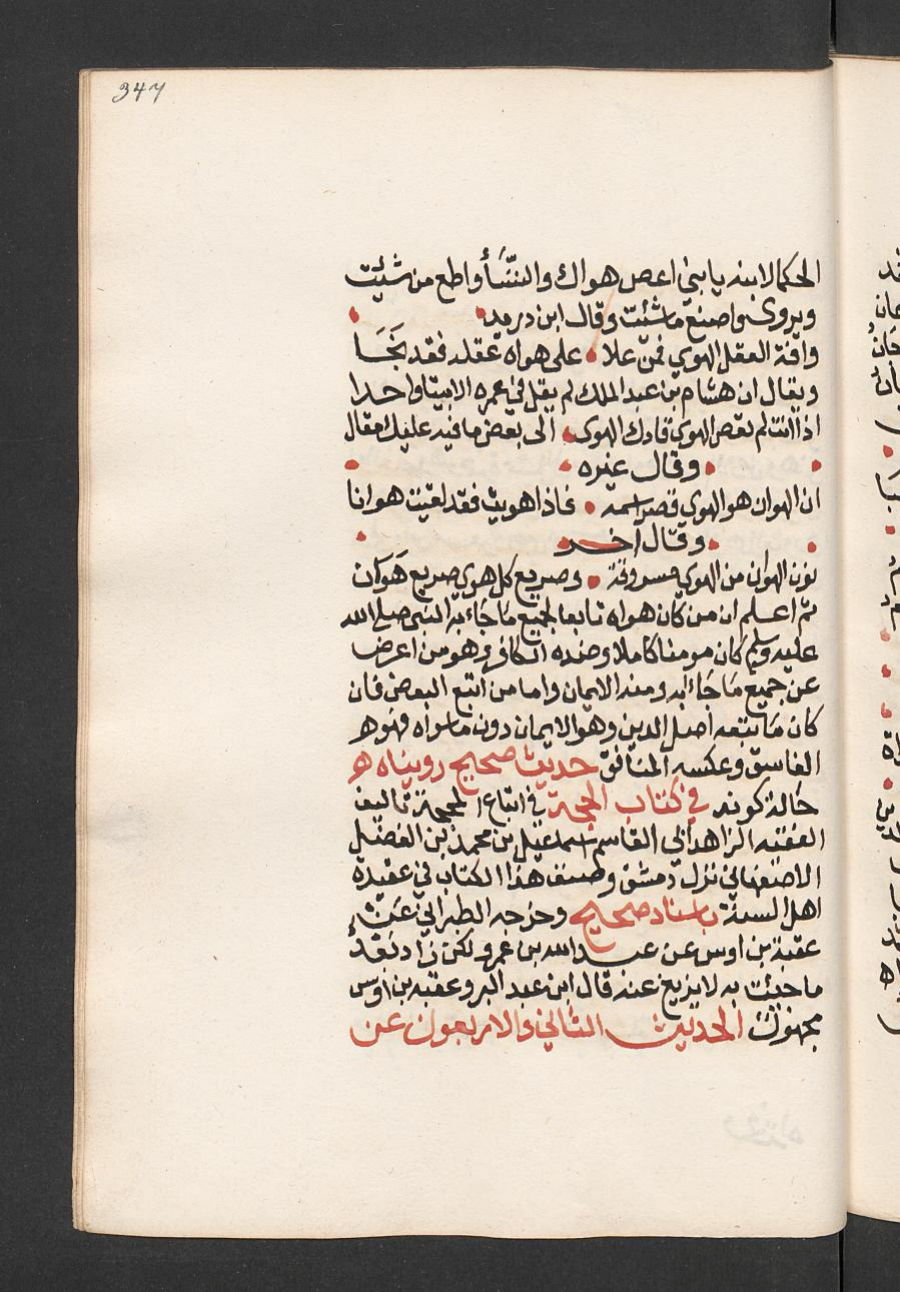 347
الحكما لابنه يا بني اعص هواك والنسأ واطع من شئت
ويروى واصنع ما شئت وقال ابن دريد
وافة العقل الهوي فمن علا على هواه عقله فقد نجا
ويقال ان هشام بن عبد الملك لم يقل في عمره الا بيتا واحدا
اذا انت لم تعص الهوي قادك الهوى الى بعض ما فيه عليك مقال
وقال غيره
ان الهوان هو الهوي قصر اسمه فاذا هويت فقد لقيت هوانا
وقال آخر
نون الهوان من الهوي مسروقة وصريع كل هوي صريع هوان
ثم اعلم ان من كان هواه تابعا لجميع ما جاء به النبي صلى الله
عليه وسلم كان مومنا كاملا وضده الكافر وهو من اعرض
عن جميع ما جاء به ومنه الايمان واما من اتبع البعض فان
كان ما يتبعه اصل الدين وهو الايمان دون ما سواه فهو
الفاسق وعكسه المنافق حديث صحيح رويناه
حالة كونه في كتاب الحجة في اتباع المحجة تاليف
الفقيه الزاهد ابي القاسم اسمعيل بن محمد بن الفضل
الاصفهاني نزل دمشق وصنف هذا الكتاب في عقيدة
اهل السنة باسناد صحيح وخرجه الطبراني عن
عقبة بن اوس عن عبد الله بن عمرو لكن زاد بعد
ما جئت به لا يزيغ عنه قال ابن عبد البر وعقبه بن اوس
مجهول الحديث الثاني والاربعون عن